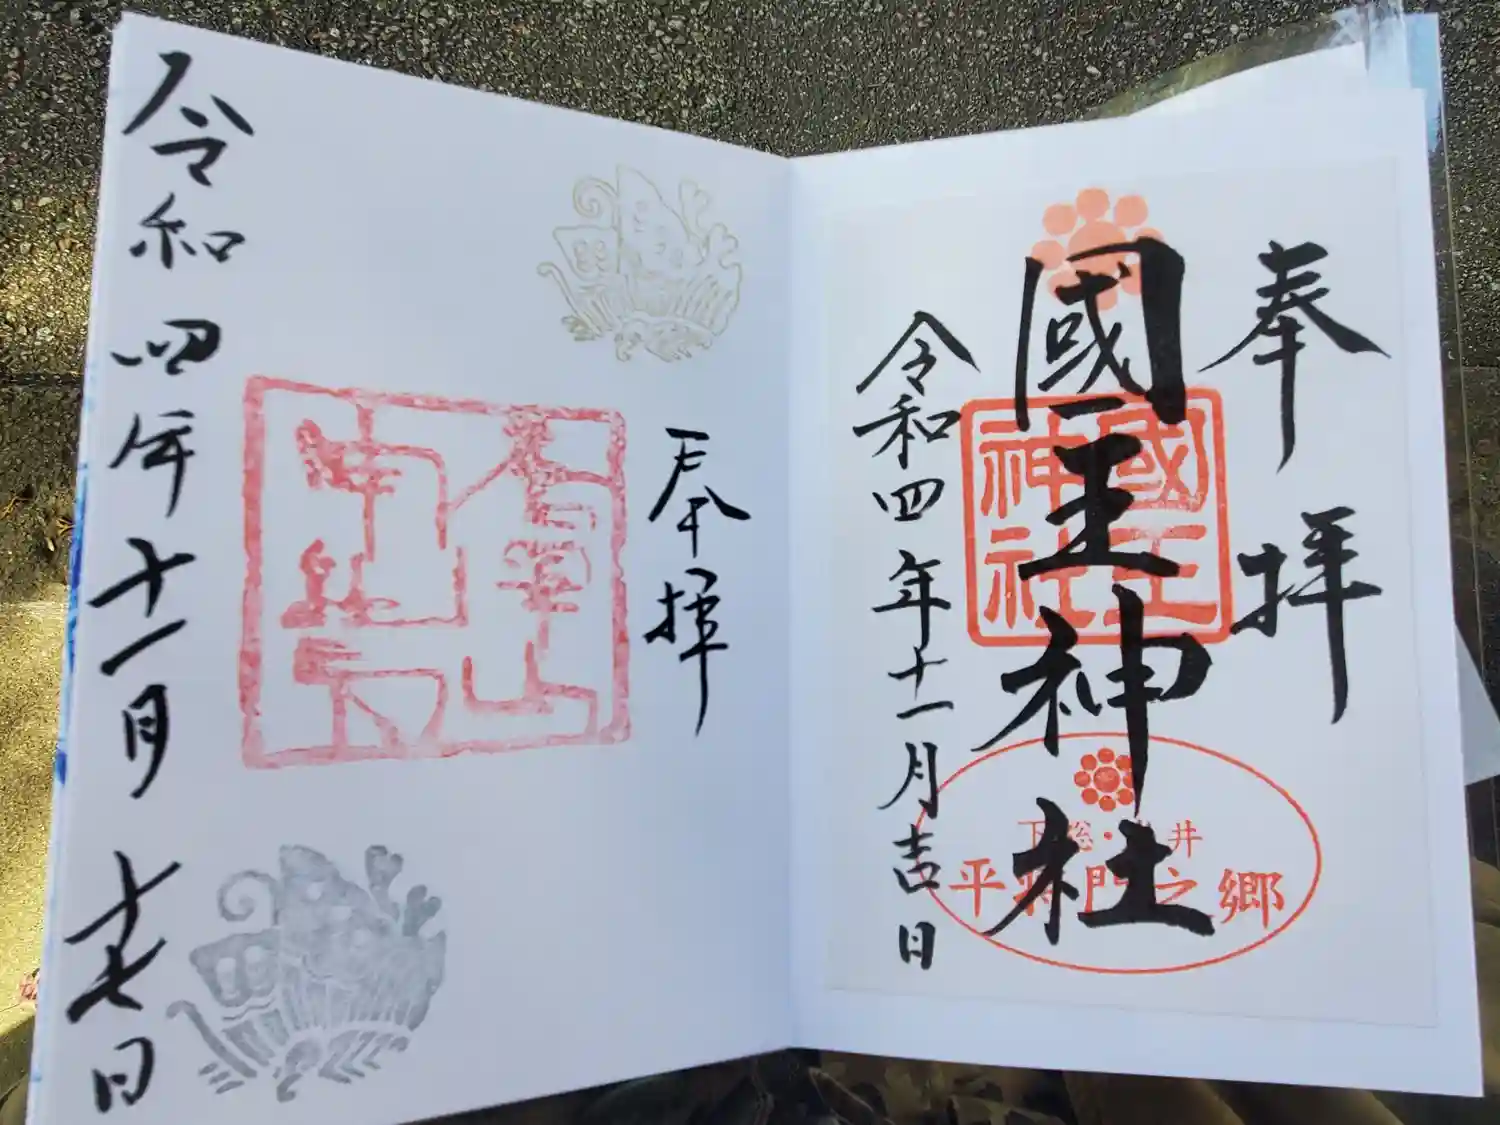 奉拝
國王神社
國王
神社
下総・岩井
平将門之郷
令和四年十一月吉日
奉拝
令和四年十一月十七日